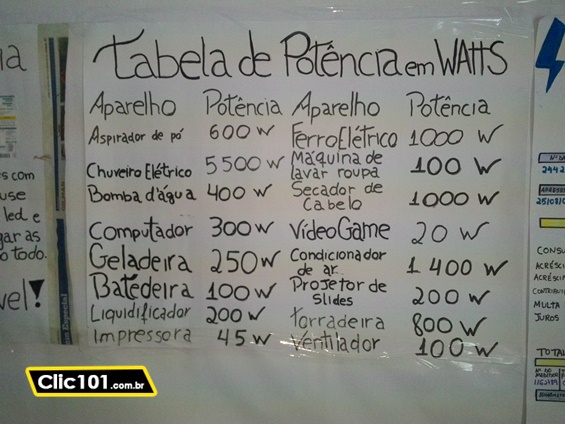 Tabela de Potência em WATTS
Aparelho Potência Aparelho Potência
Aspirador de pó 600 W
Ferro Elétrico 1000 W
Chuveiro Elétrico 5500 W
Máquina de
lavar roupa 100 W
Bomba d'água 400 W
Secador de
Cabelo 1000 W
Computador 300 W
Vídeo Game 20 W
Geladeira 250 W
Condicionador
de ar 1 400 W
Batedeira 100 W
Projetor de
Slides 200 W
Liquidificador 200 W
Torradeira 800 W
Impressora 45 W
Ventilador 100 W
ia
s com
use
led e
gar as
o todo.
vel!
Especial
25/08/0
CONSU
ACRÉSCI
ACRÉSCIM
MULTA
JUROS
TOTAL
Clic101.com.br